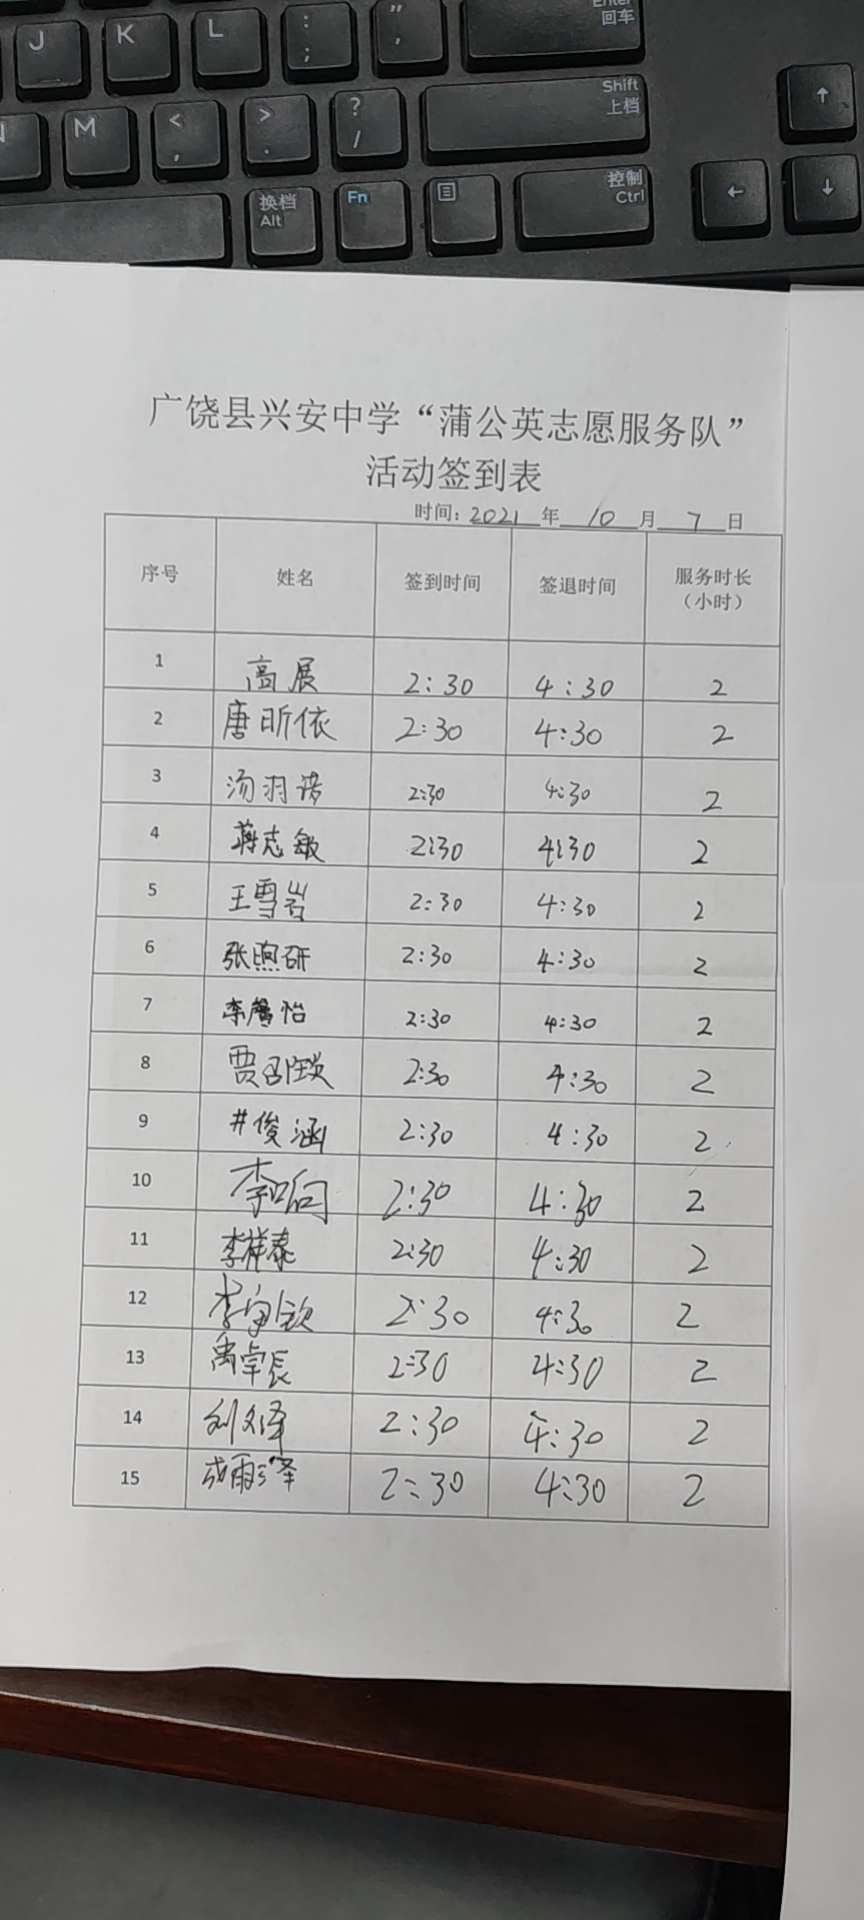 J K L : ; " , Enter 回车
M < , > . ? / Shift 上档 ↑
换档 Alt Fn 控制 Ctrl ← ↓
广饶县兴安中学“蒲公英志愿服务队”
活动签到表
时间: 2021 年 10 月 7 日
序号 姓名 签到时间 签退时间 服务时长（小时）
1 高展 2:30 4:30 2
2 唐昕依 2:30 4:30 2
3 汤羽诺 2:30 4:30 2
4 蒋志敏 2:30 4:30 2
5 王雪岩 2:30 4:30 2
6 张煦研 2:30 4:30 2
7 李馨怡 2:30 4:30 2
8 贾 2:30 4:30 2
9 井俊涵 2:30 4:30 2
10 李 2:30 4:30 2
11 李祥泰 2:30 4:30 2
12 李 2:30 4:30 2
13 禹卓辰 2:30 4:30 2
14 刘文泽 2:30 4:30 2
15 成雨泽 2:30 4:30 2